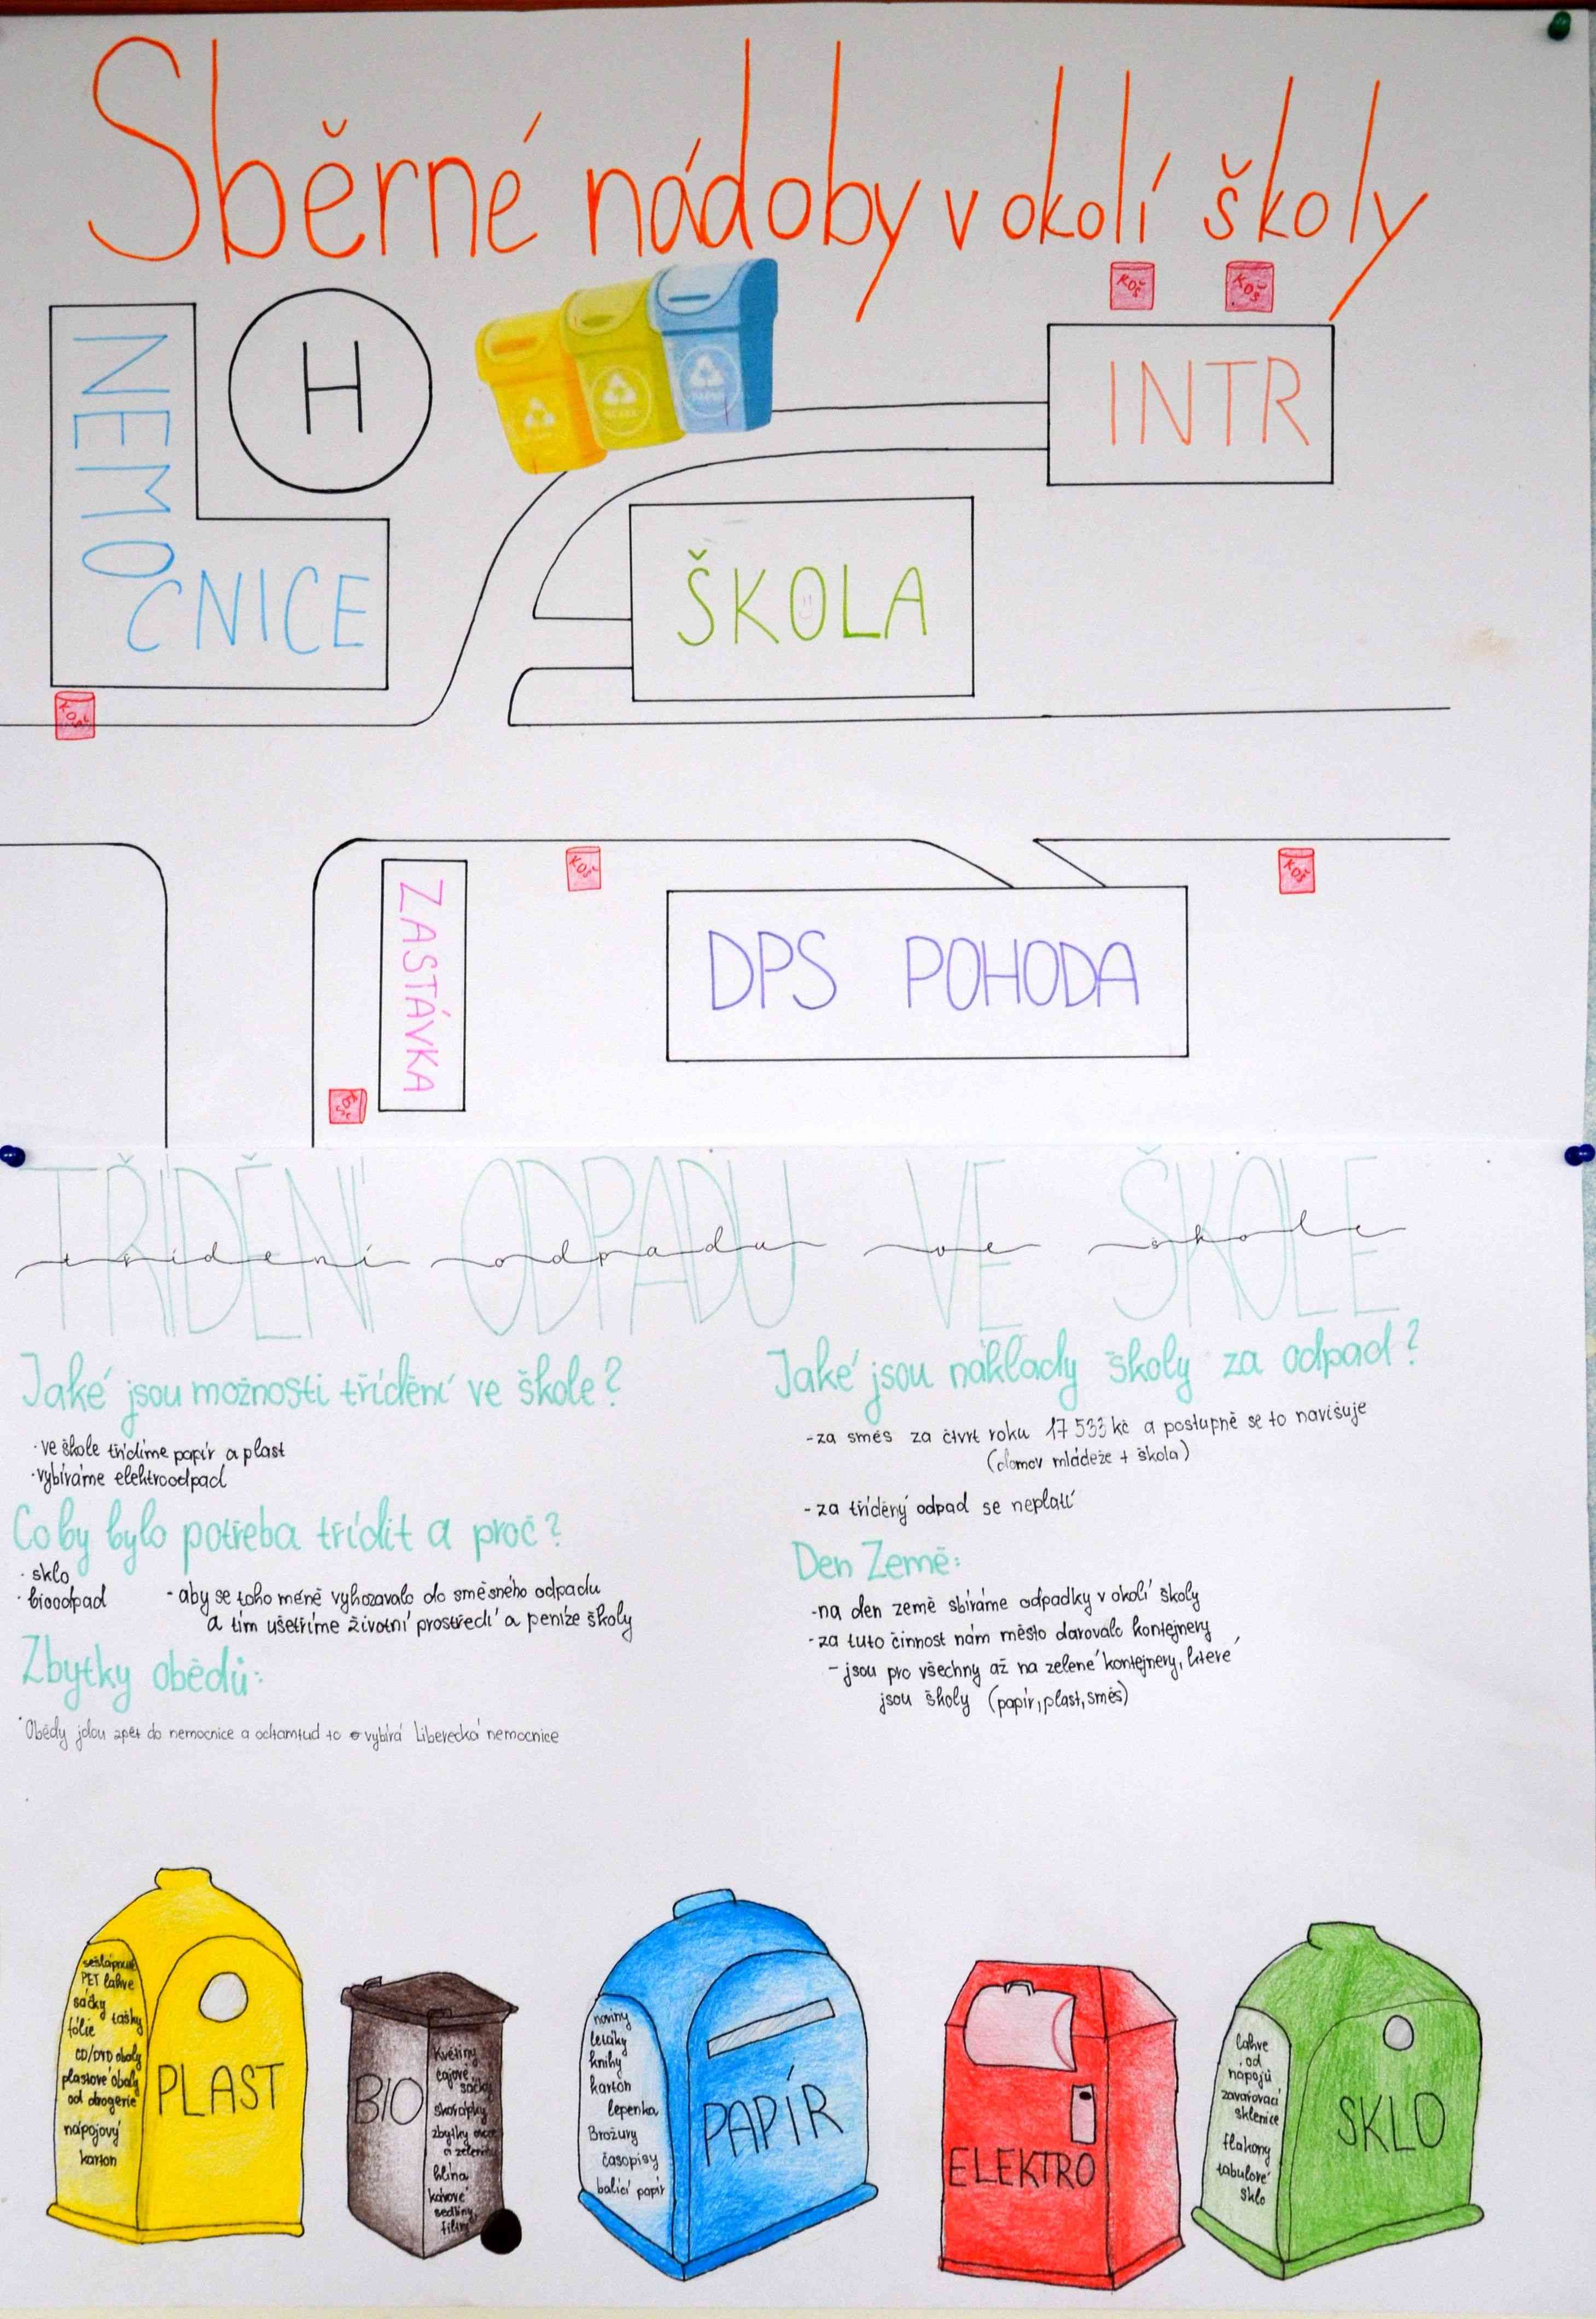 Sběrné nádoby v okolí školy
KOŠ
KOŠ
NEMOCNICE
H
INTR
ŠKOLA
KOŠ
KOŠ
KOŠ
ZASTÁVKA
DPS POHODA
KOŠ
TŘÍDĚNÍ ODPADU VE ŠKOLE
třídení odpadu ve škole
Jaké jsou možnosti třídění ve škole?
· ve škole třídíme papír a plast
· vybíráme elektroodpad
Co by bylo potřeba třídit a proč?
· sklo
· bioodpad
- aby se toho méně vyhazovalo do směsného odpadu
a tím ušetříme životní prostředí a peníze školy
Zbytky obědů:
· Obědy jdou zpět do nemocnice a odtamtud to vybírá Liberecká nemocnice
Jaké jsou náklady školy za odpad?
- za směs za čtvrt roku 17 533 kč a postupně se to navišuje
(domov mládeže + škola)
- za tříděný odpad se neplatí
Den Země:
- na den země sbíráme odpadky v okolí školy
- za tuto činnost nám město darovalo kontejnery
- jsou pro všechny až na zelené kontejnery, které
jsou školy (papír, plast, směs)
sešlápnuté
PET lahve
sáčky
tašky
fólie
CD/DVD obaly
plastové obaly
od drogerie
nápojový
karton
PLAST
BIO
květiny
čajové
sáčky
skořápky
zbytky ovoce
a zeleniny
hlína
kávové
sedliny,
filtry
noviny
letáky
knihy
karton
lepenka
Brožury
časopisy
balící papír
PAPÍR
ELEKTRO
lahve
od
nápojů
zavařovací
sklenice
flakony
tabulové
sklo
SKLO